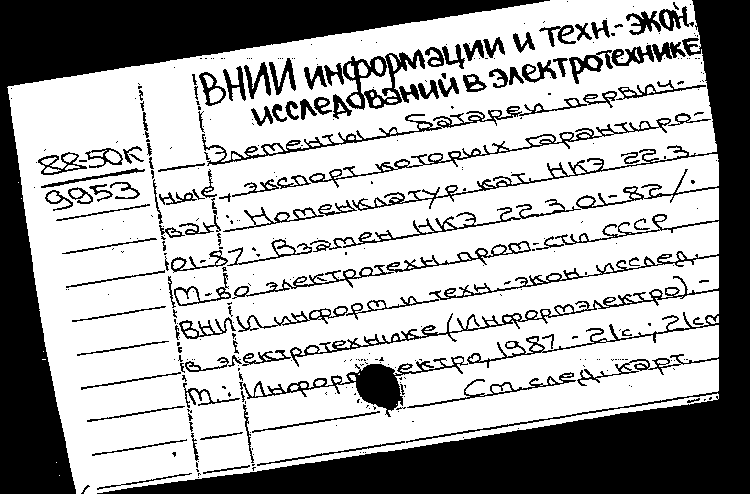 ВНИИ информации и техн.-экон.
исследований в электротехнике
88-50К
9953
Элементы и батареи первич-
ные, экспорт которых гарантиро-
ван: Номенклатур. кат. НКЭ 22.3.
01-87: Взамен НКЭ 22.3.01-82/.
М-во электротехн. пром-сти СССР,
ВНИИ информ и техн.-экон. исслед.
в электротехнике (Информэлектро).-
М.: Информэлектро, 1987.-21с.; 21см
См. след. карт.